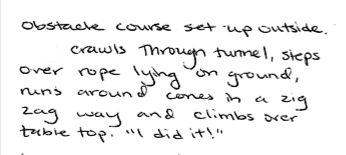 Obstacle course set up outside.
crawls Through tunnel, steps
over rope lying on ground,
runs around cones in a zig
zag way and climbs over
table top. "I did it!"